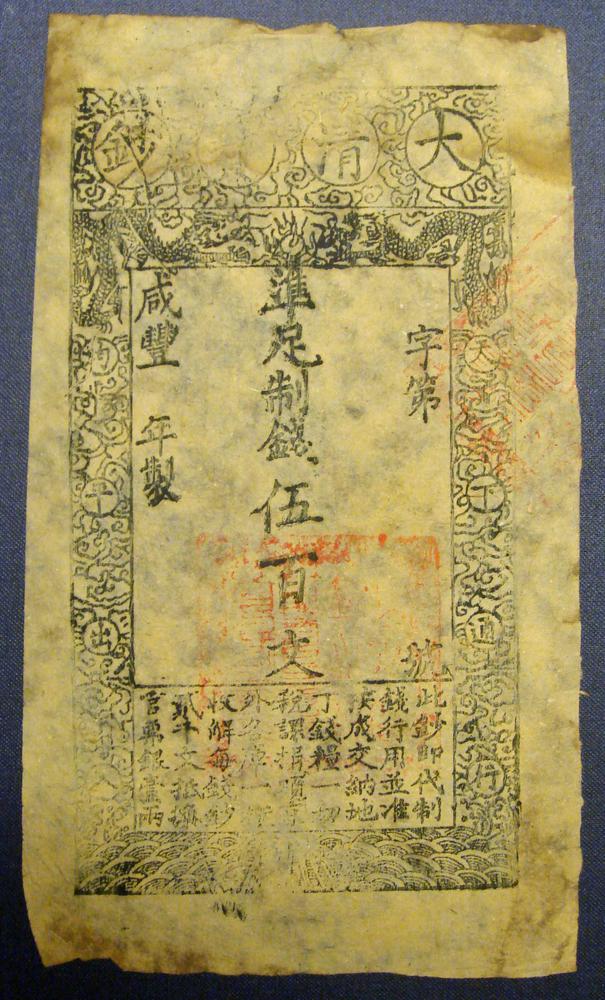 大清鈔
天下通行
字第 號
準足制錢伍百文
咸豐 年製
均平出
此鈔即代制
錢行用並准
按成交納地
丁錢糧一切
稅課捐項京
外各庫一概
收解每錢鈔
貳千文抵換
官票銀壹兩